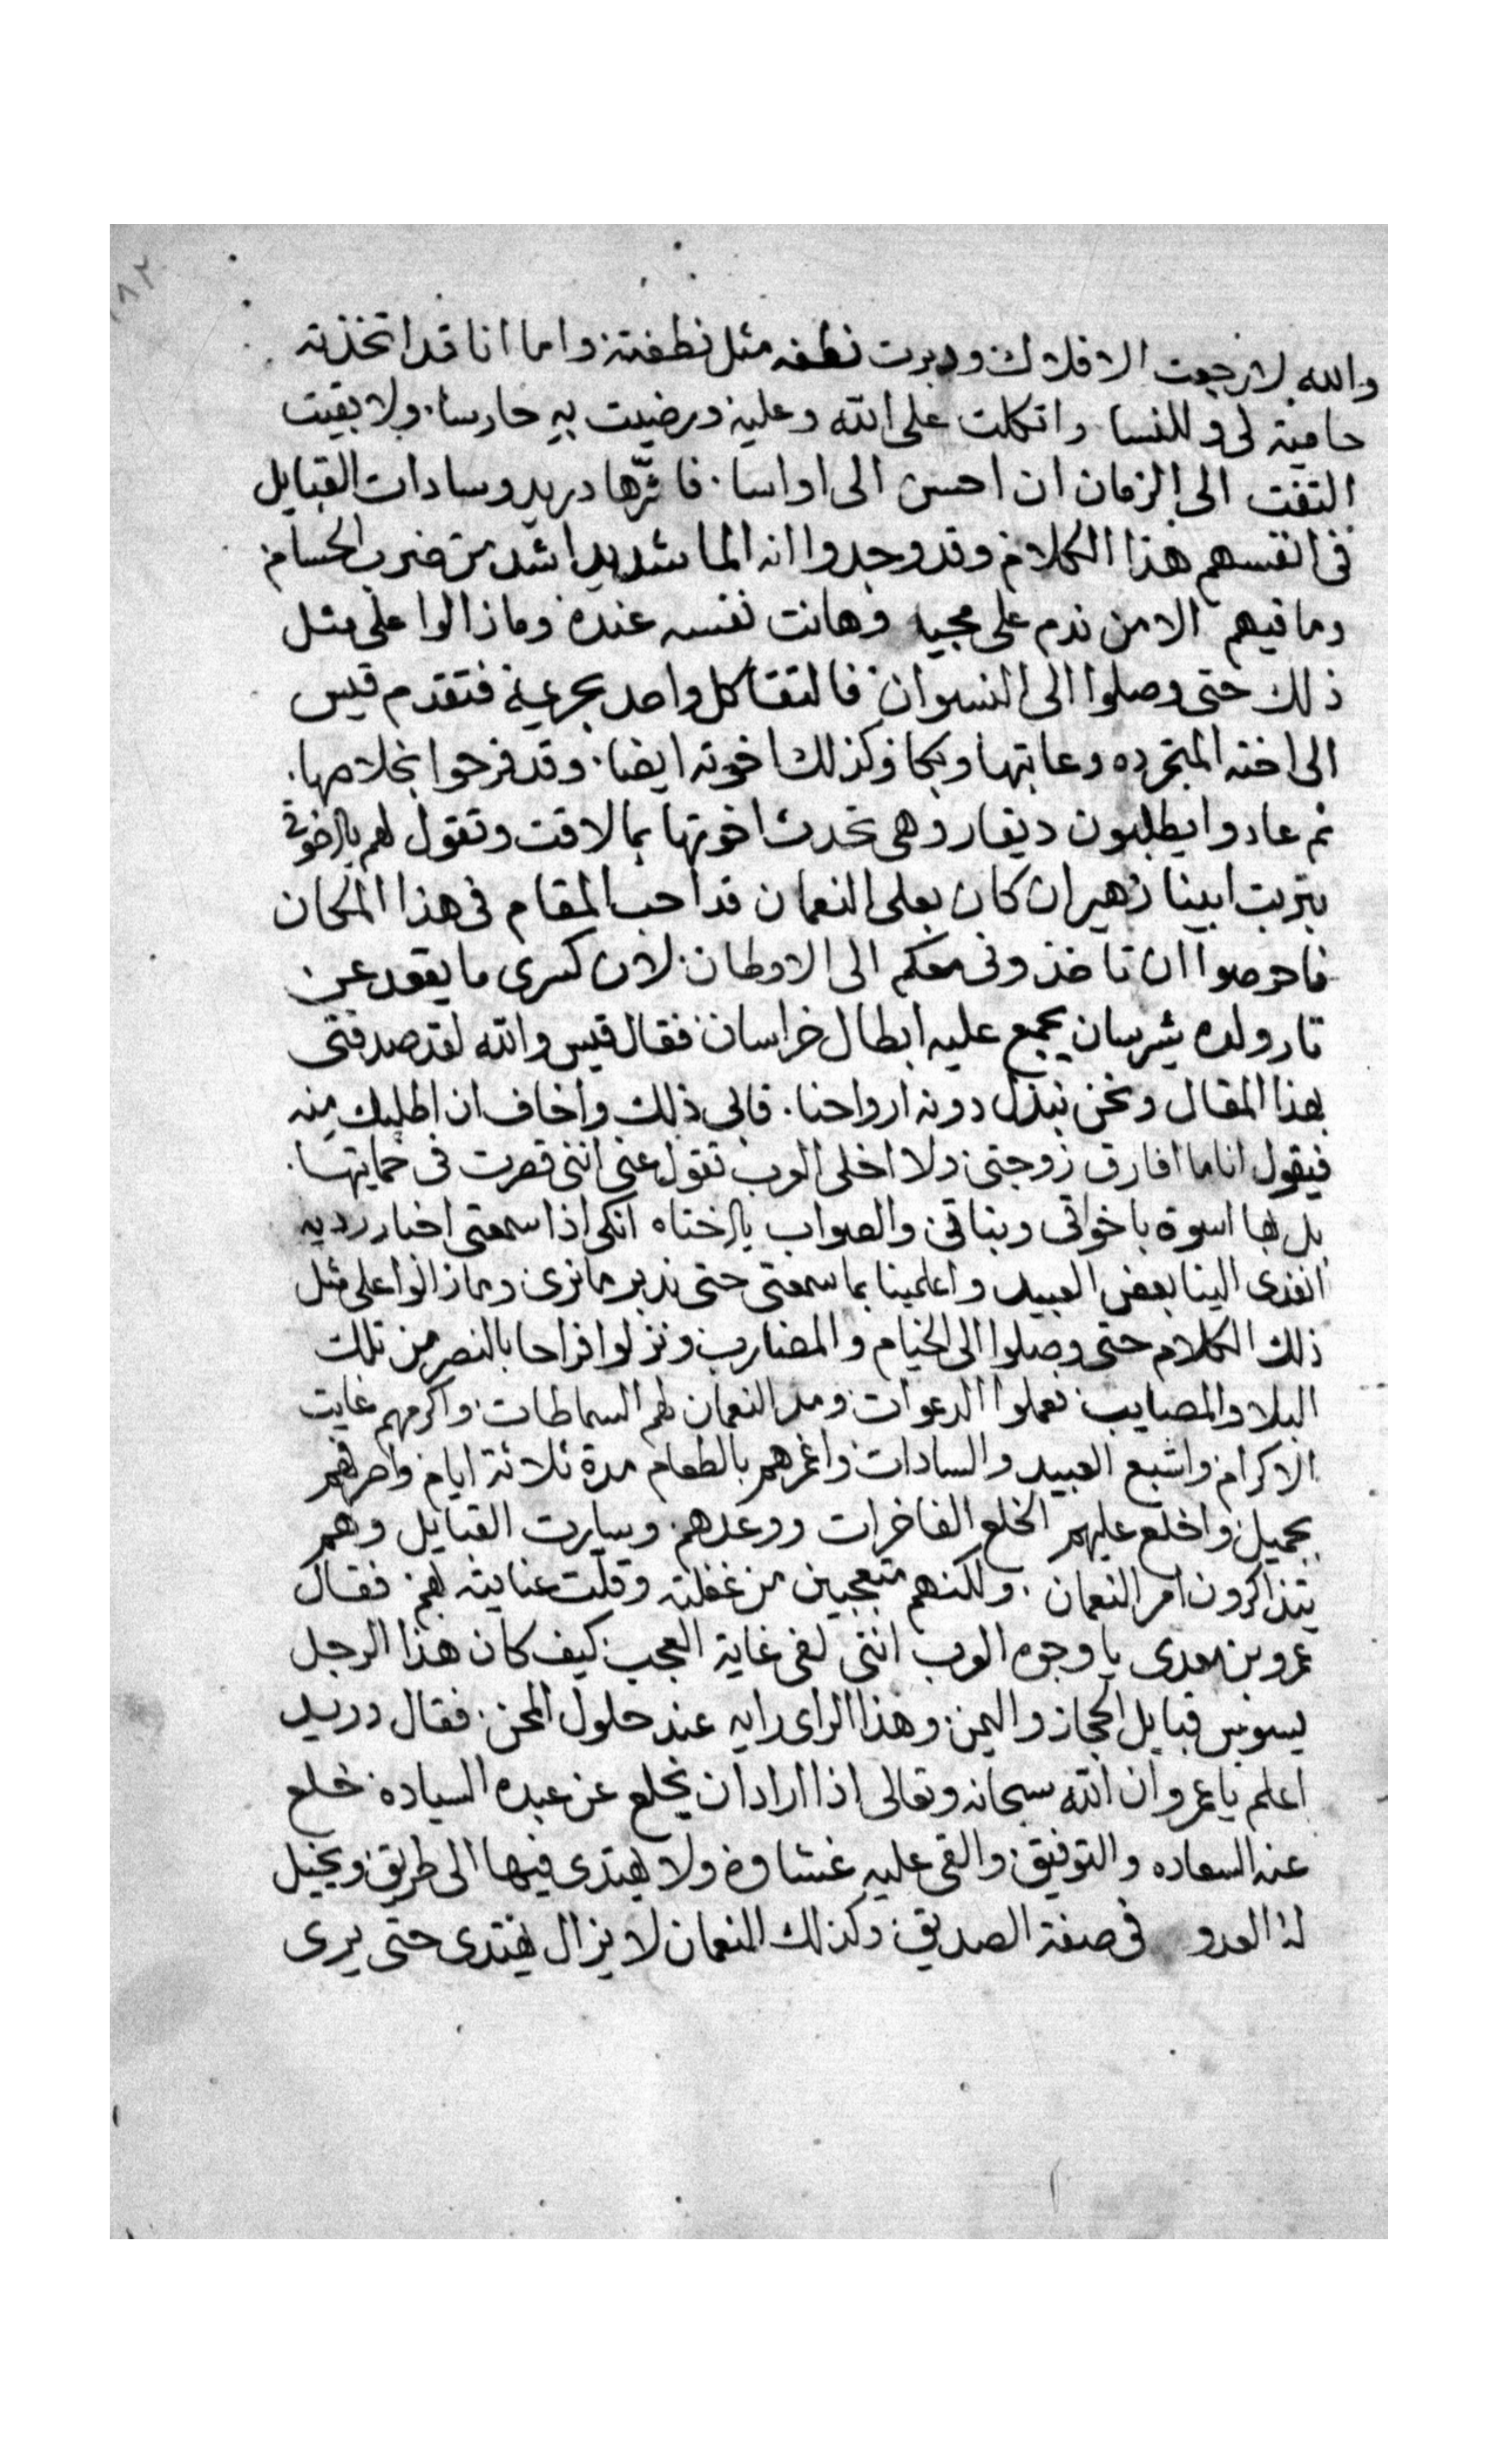 ١٨٢
والله لا رجعت الافلاك ودبرت نطفه مثل نطفته واما انا قد اتخذته
حامية لى وللنسا واتكلت على الله وعليه ورضيت به حارسا ولا بقيت
التفت الى الزمان ان احسن الى او اسا فاثرها دريد وسادات القبايل
فى انفسهم هذا الكلام وقد وجدوا انه الما شديدا اشد من ضرب الحسام
وما فيهم الا من ندم على مجيه وهانت نفسه عنده وما زالوا على مثل
ذلك حتى وصلوا الى النسوان فالتقا كل واحد بحريمه فتقدم قيس
الى اخته المتجرده وعاتبها وبكا وكذلك اخوته ايضا وقد فرحوا بخلاصها
ثم عادوا يطلبون ديقار وهى تحدث اخوتها بما لاقت وتقول لهم يااخوتى
بتربت ابينا زهير ان كان بعلى النعمان قد احب المقام فى هذا المكان
فاحرصوا ان تاخذونى معكم الى الاوطان لان كسرى ما يقعد عن
تار ولده يجمع عليه ابطال خراسان فقال قيس والله لقد صدقتى
بهذا المقال ونحن نبذل دونه ارواحنا قالى ذلك واخاف ان اطلبك منه
فيقول انا ما افارق زوجتى ولا اخلى العرب تقول عنى اننى قصرت فى حمايتها
بل لها اسوة باخواتى وبناتى والصواب يااختاه انكى اذا سمعتى اخبار رديه
انفدى الينا بعض العبيد واعلمينا بما سمعتى حتى ندبر ما نرى وما زالوا على مثل
ذلك الكلام حتى وصلوا الى الخيام والمضارب ونزلوا فراحا بالنصر من تلك
البلا والمصايب فعملوا الدعوات ومد النعمان لهم السماطات واكرمهم غايت
الاكرام واشبع العبيد والسادات واغمرهم بالطعام مدة ثلاثة ايام واصرفهم
بجميل واخلع عليهم الخلع الفاخرات ووعدهم وسارت القبايل وهم
يتذاكرون امر النعمان ولكنهم متعجبين من غفلته وقلت عنايته لهم فقال
عمرو بن معدى يا وجوه العرب اننى لفى غاية العجب كيف كان هذا الرجل
يسوس قبايل الحجاز واليمن وهذا الراى رايه عند حلول المحن فقال دريد
اعلم يا عمرو ان الله سبحانه وتعالى اذا اراد ان يخلع عن عبده السياده خلع
عنه السعاده والتوفيق والقى عليه غشاوه ولا يهتدى فيها الى طريق ويخيل
له العدو فى صفة الصديق وكذلك النعمان لا يزال يهتدى حتى يرى